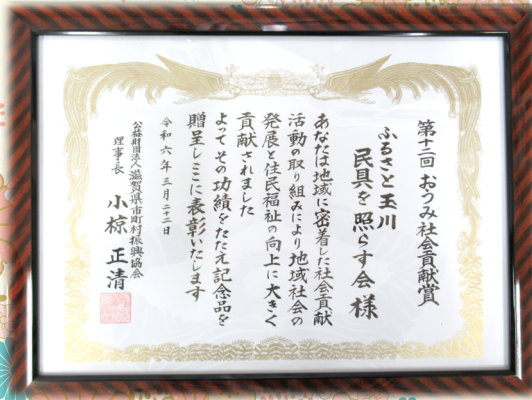 第十二回 おうみ社会貢献賞
ふるさと玉川
民具を照らす会 様
あなたは地域に密着した社会貢献
活動の取り組みにより地域社会の
発展と住民福祉の向上に大きく
貢献されました
よってその功績をたたえ記念品を
贈呈しここに表彰いたします
令和六年三月二十二日
公益財団法人滋賀県市町村振興協会
理事長 小椋 正清